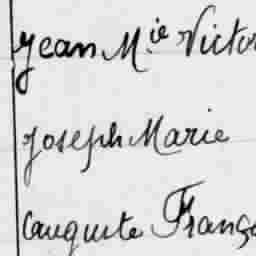 Jean Mie Victor
Joseph Marie
Auguste Franç